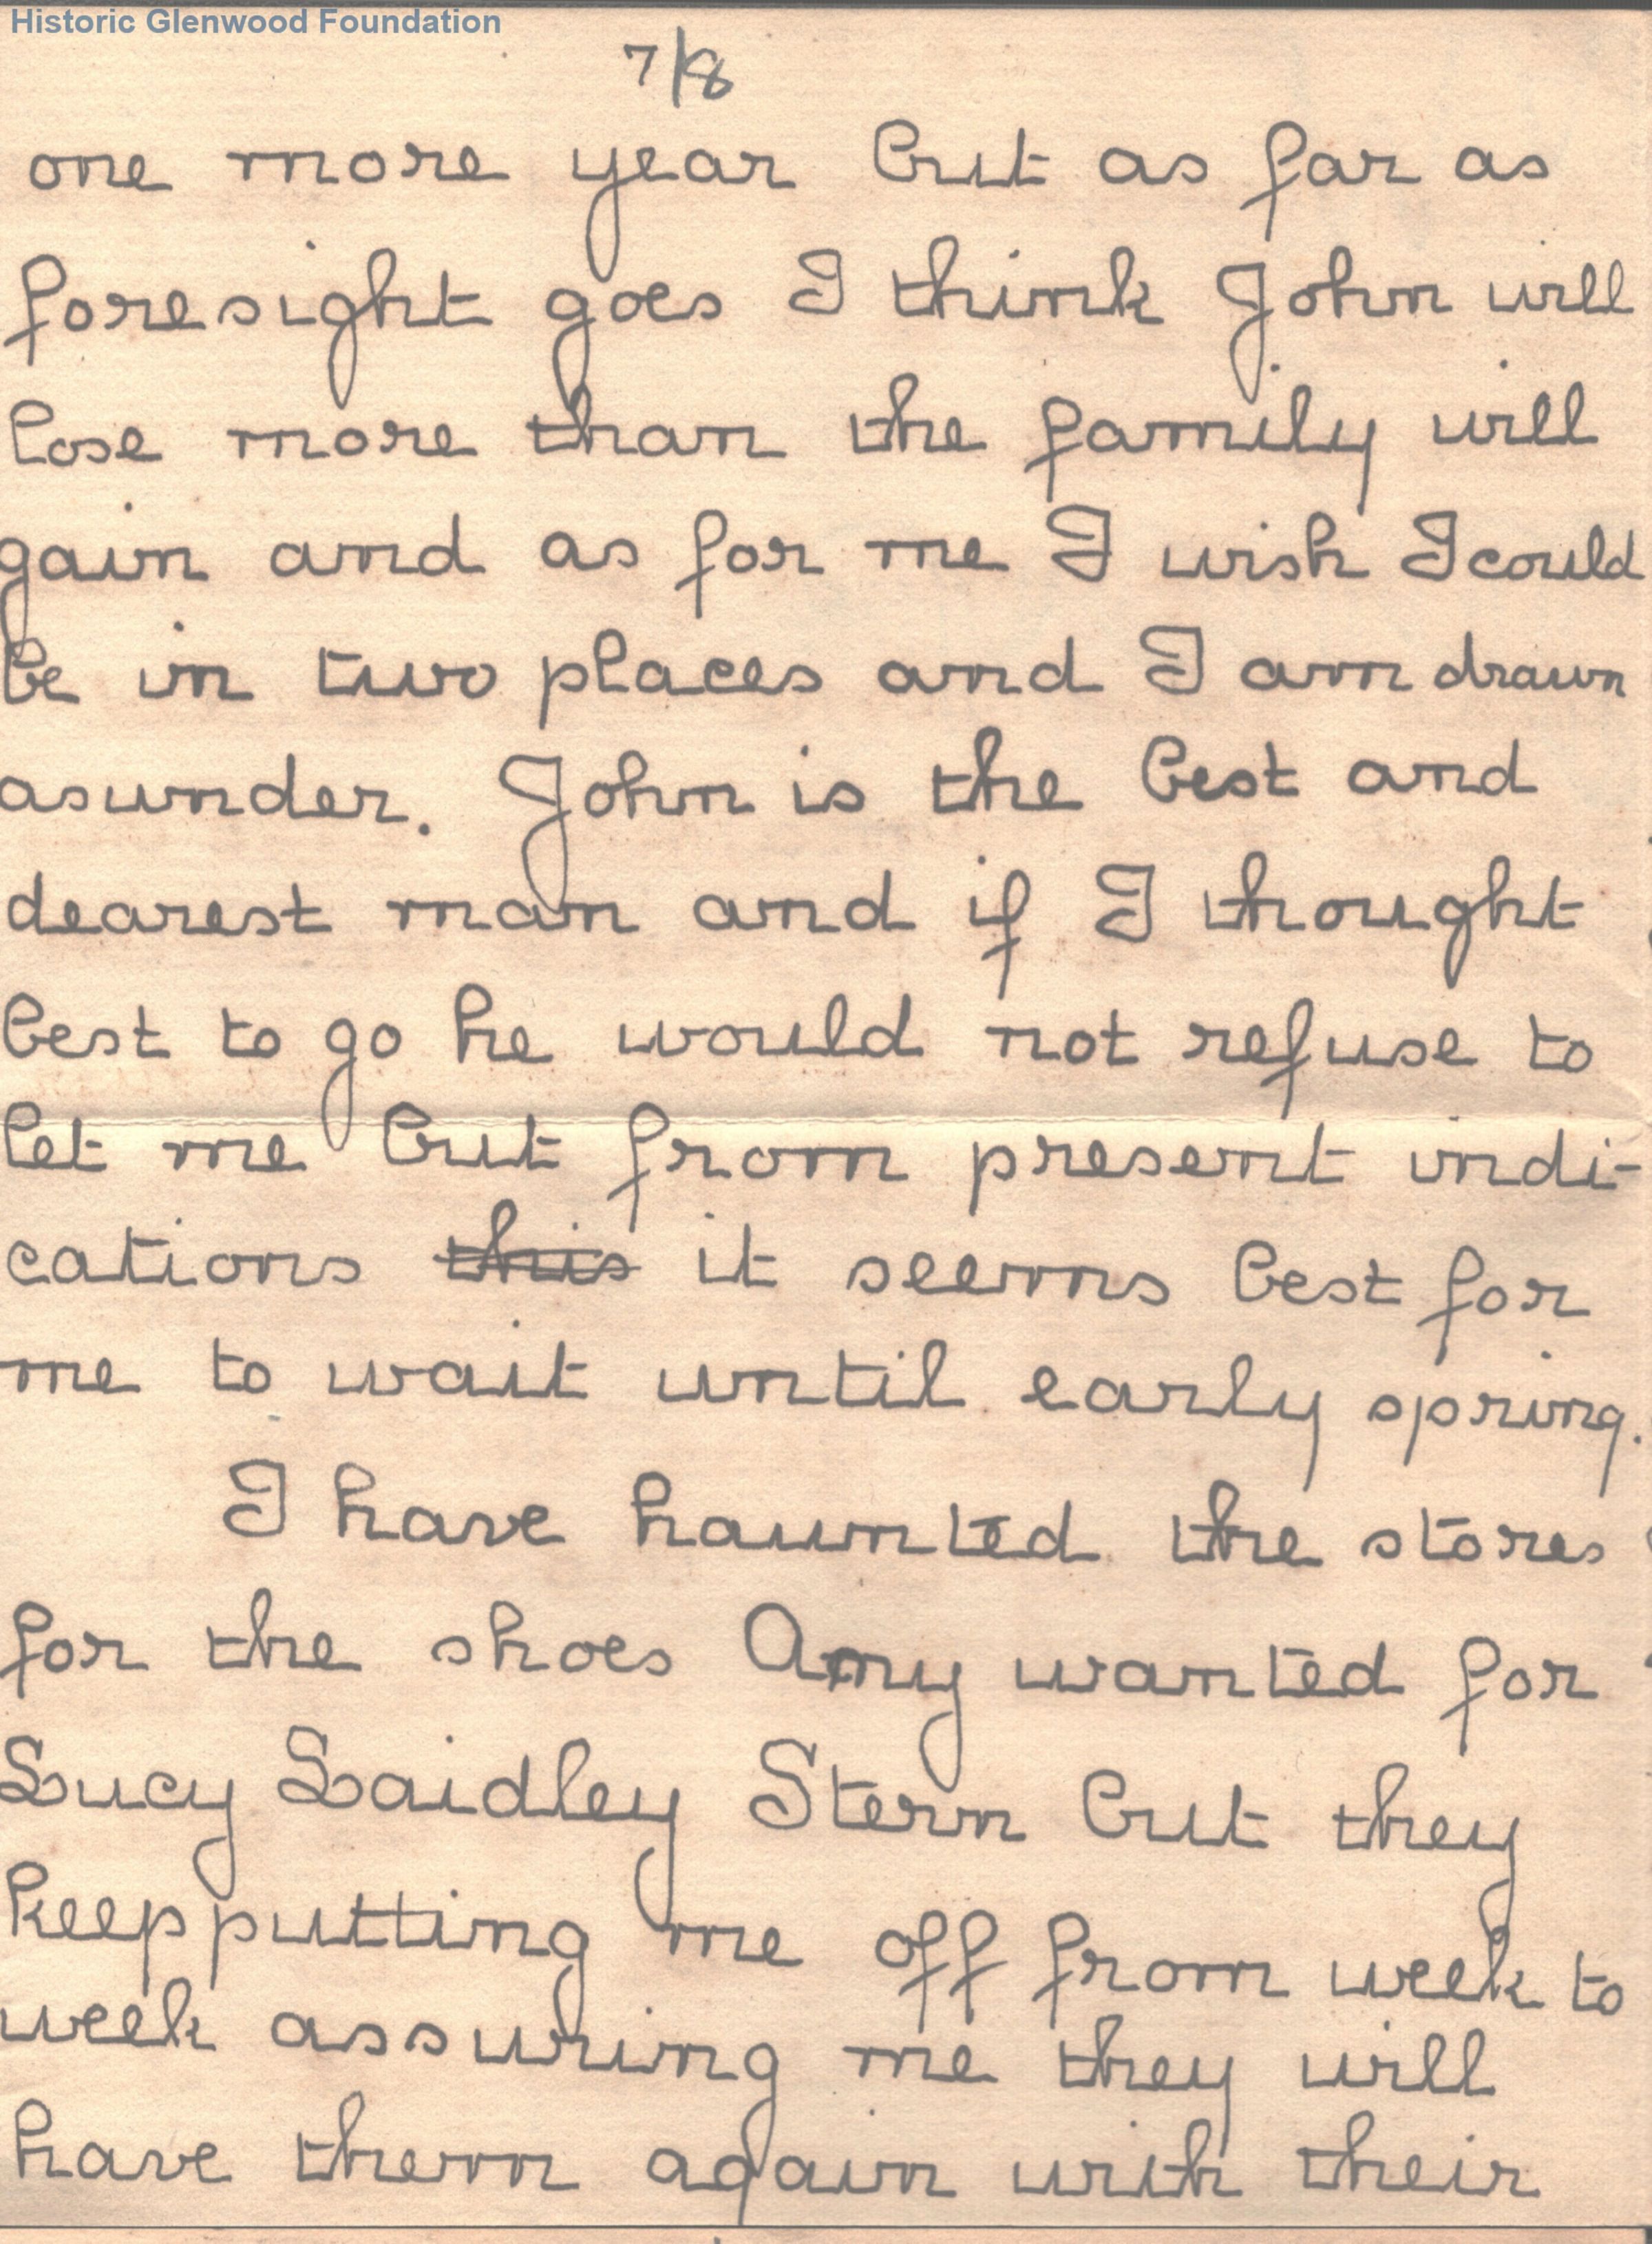 Historic Glenwood Foundation
7/8
one more year but as far as
foresight goes I think John will
lose more than the family will
gain and as for me I wish I could
be in two places and I am drawn
asunder. John is the best and
dearest man and if I thought
best to go he would not refuse to
let me but from present indi-
cations this it seems best for
me to wait until early spring.
I have haunted the stores
for the shoes Amy wanted for
Lucy Laidley Stern but they
keep putting me off from week to
week assuring me they will
have them again with their